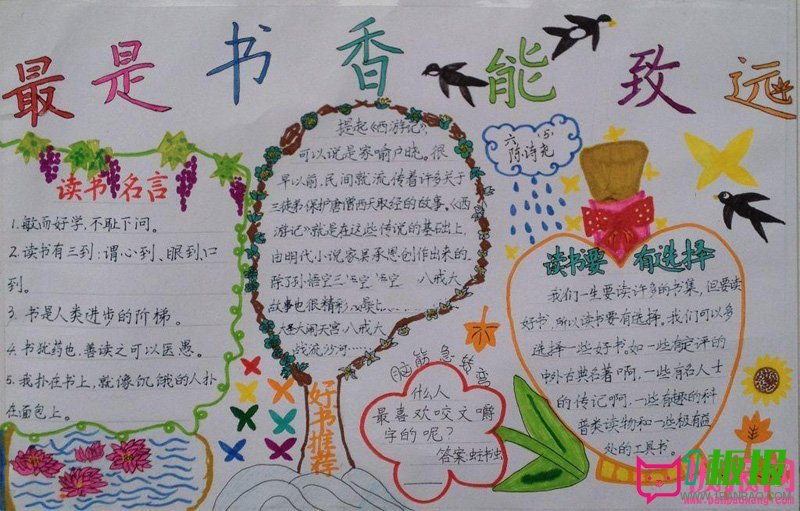 最是书香能致远
读书名言
1.敏而好学,不耻下问。
2.读书有三到:谓心到、眼到、口
到。
3.书是人类进步的阶梯。
4.书犹药也,善读之可以医愚。
5.我扑在书上,就像饥饿的人扑
在面包上。
提起《西游记》,
可以说是家喻户晓。很
早以前,民间就流传着许多关于
三徒弟保护唐僧西天取经的故事。《西
游记》就是在这些传说的基础上,
由明代小说家吴承恩创作出来的.
除了孙悟空三 悟空 八戒大
故事也很精彩
大圣大闹天宫 八戒大
战流沙河……
好书推荐
六.5.
陈诗尧
脑筋急转弯
什么人
最喜欢咬文嚼
字的呢?
答案:蛀书虫
读书要 有选择
我们一生要读许多的书集,但要读
好书,所以读书要有选择。我们可以多
选择一些好书。如一些有定评的
中外古典名著啊,一些有名人士
的传记啊,一些有趣的科
普类读物和一些极有益
处的工具书。
板报
1BANBAO.COM